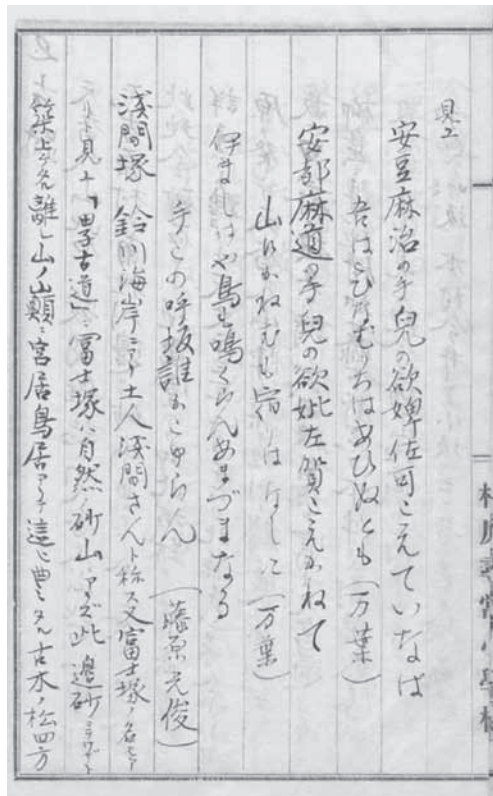 見ユ
安豆麻治の手児の欲婢佐可こえていなば
吾はこひなむのちはあひぬとも(万葉)
安都麻道の手児の欲妣左賀こえかねて
山にかねむも宿りはなしに(万葉)
はや鳥も鳴くらんあづまなる
手この呼坂誰かこゆらん(藤原光俊)
浅間塚 鈴川海岸ニアリ土人浅間さんト称ス又富士塚ノ名モアリ
見ユ「男子古道」ニ富士塚ハ自然ノ砂山ニアラズ此邊砂ニテワザト
築上ゲタル離レ山ノ山顛ニ宮居鳥居アリテ這ヒ曲ミタル古木ノ松四方
尋常小學校